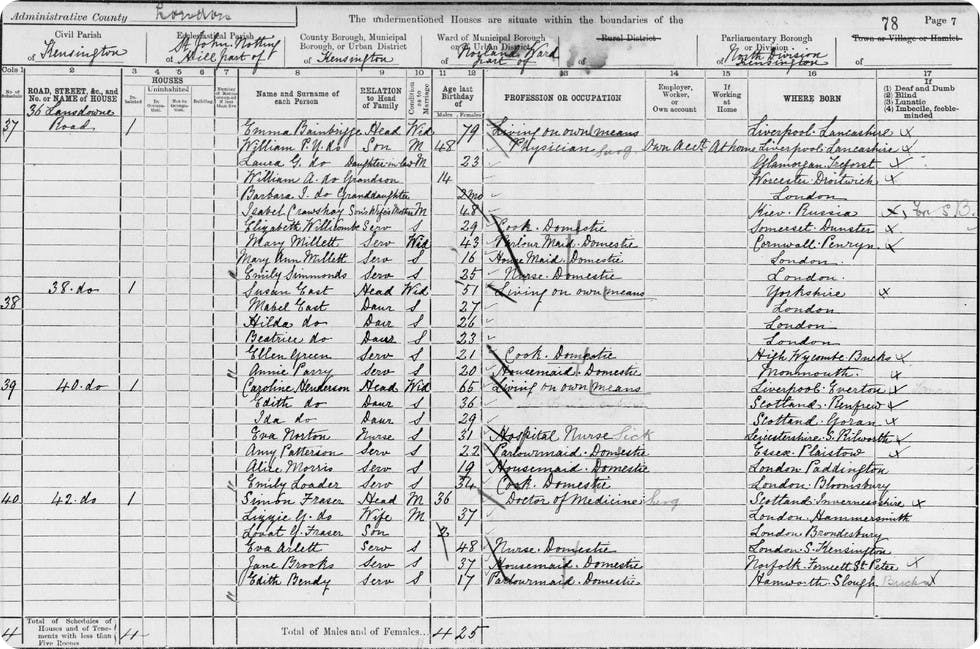 Administrative County London The undermentioned Houses are situate within the boundaries of the 78 Page 7
Civil Parish Ecclesiastical Parish County Borough, Municipal Borough, or Urban District Ward of Municipal Borough or of Urban District Rural District Parliamentary Borough or Division Town or Village or Hamlet
of Kensington of St John Notting Hill part of of Kensington of Norland Ward part of of of North Division Kensington of
Cols 1 2 3 4 5 6 7 8 9 10 11 12 13 14 15 16 17
No. of Schedule ROAD, STREET, &c., and No. or NAME of HOUSE HOUSES Inhabited Uninhabited In Occupation Not in Occupation Building Number of Rooms occupied if less than five Name and Surname of each Person RELATION to Head of Family Condition as to Marriage Age last Birthday of Males Females PROFESSION OR OCCUPATION Employer, Worker, or Own account If Working at Home WHERE BORN (1) Deaf and Dumb (2) Blind (3) Lunatic (4) Imbecile, feeble-minded
37 36 Lansdowne Road 1 Emma Bainbrigge Head Wid 79 Living on own means Liverpool Lancashire
William P.Y. do Son M 48 Physician Surg Own Acct At home Liverpool Lancashire
Laura G. do Daughter in law M 23 Glamorgan Treforst
William A. do Grandson 14 Worcester Droitwich
Barbara I. do Granddaughter 2 mo London
Isabel Crawshay Son's Wife's Mother M 48 Kiev Russia
Elizabeth Willicombe Serv S 29 Cook Domestic Somerset Dunster
Mary Millett Serv Wid 43 Parlour Maid Domestic Cornwall Penryn
Mary Ann Millett Serv S 16 House Maid Domestic London
Emily Simmonds Serv S 25 Nurse Domestic London
38 38 do 1 Susan East Head Wid 51 Living on own means Yorkshire
Mabel East Daur S 27 London
Hilda do Daur S 26 London
Beatrice do Daur S 23 London
Ellen Green Serv S 21 Cook Domestic High Wycombe Bucks
Annie Parry Serv S 20 Housemaid Domestic Monmouth
39 40 do 1 Caroline Henderson Head Wid 65 Living on own means Liverpool Everton
Edith do Daur S 36 Scotland Renfrew
Ida do Daur S 29 Scotland Govan
Eva Norton Nurse S 31 Hospital Nurse Sick Leicestershire S. Kilworth
Amy Patterson Serv S 22 Parlourmaid Domestic Essex Plaistow
Alice Morris Serv S 19 Housemaid Domestic London Paddington
Emily Loader Serv S 34 Cook Domestic London Bloomsbury
40 42 do 1 Simon Fraser Head M 36 Doctor of Medicine Surg Scotland Invernesshire
Lizzie G. do Wife M 37 London Hammersmith
Lovat G. Fraser Son London Brondesbury
Eva Arlett Serv S 48 Nurse Domestic London S. Kensington
Jane Brooks Serv S 37 Housemaid Domestic Norfolk Forncett St Peter
Edith Bendy Serv S 17 Parlourmaid Domestic Hamworth Slough Bucks
4 Total of Schedules of Houses and of Tenements with less than Five Rooms 4 Total of Males and of Females... 4 25